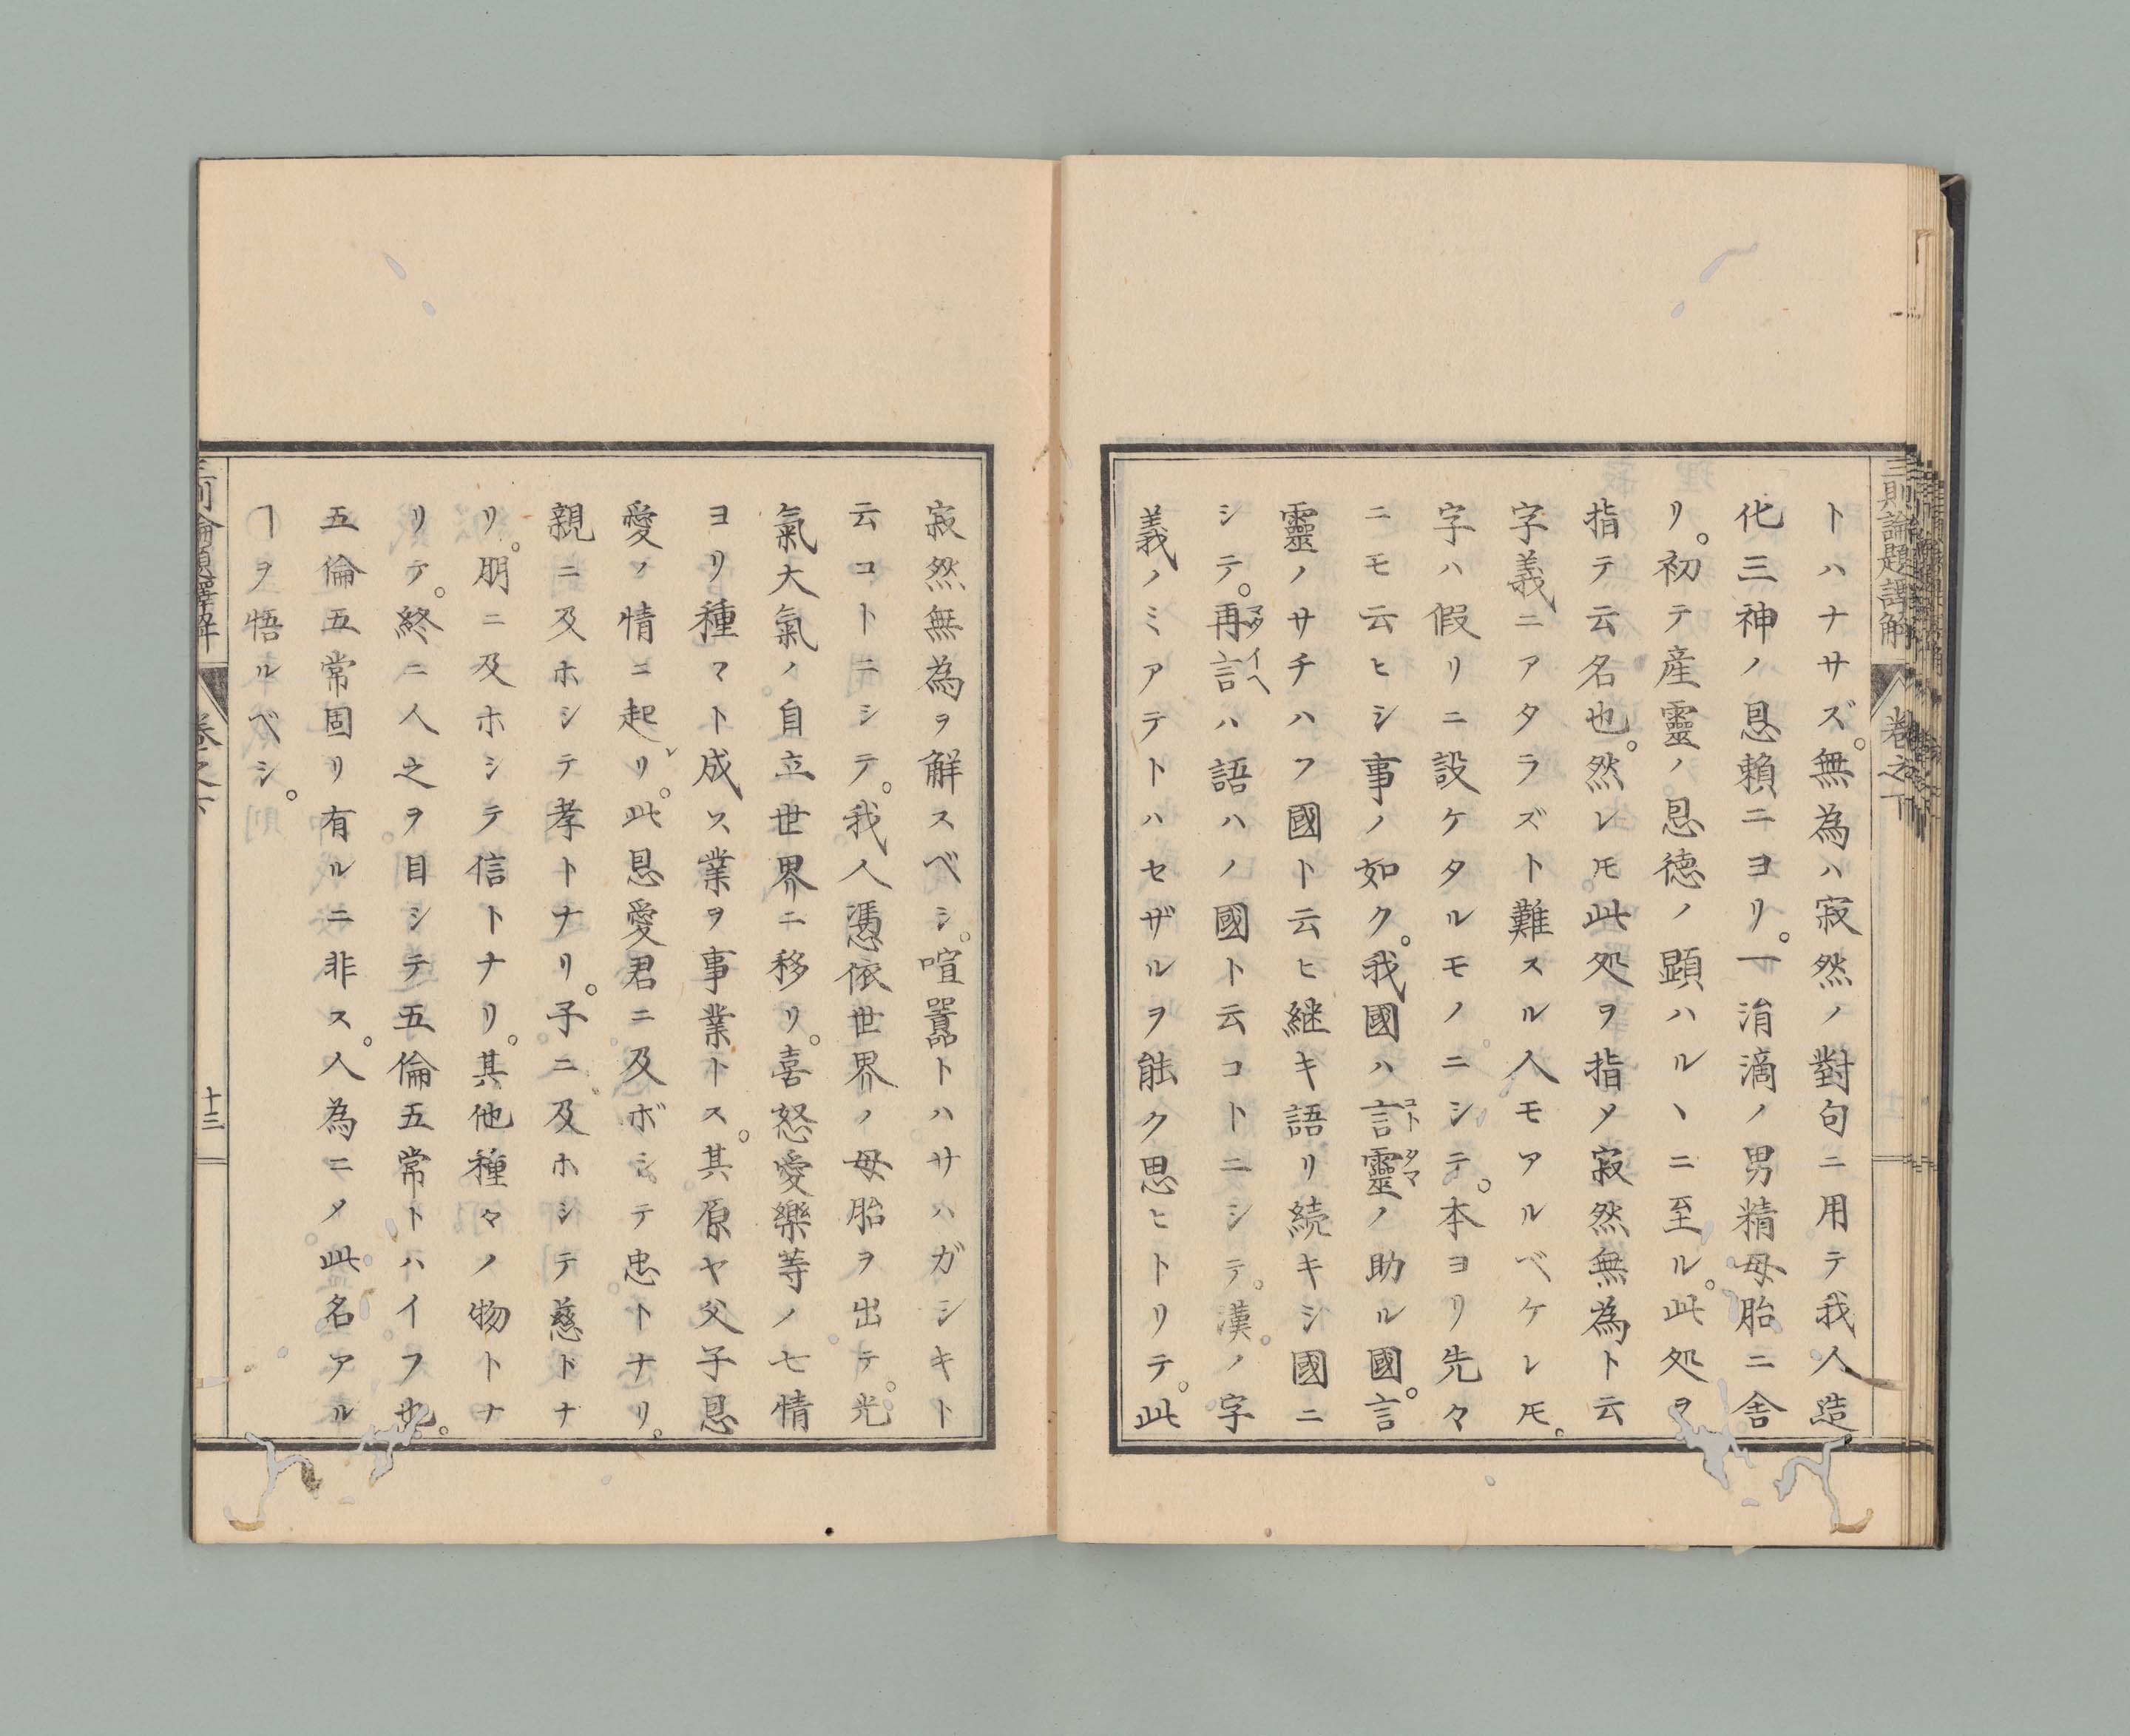 三則論題譯解 卷之下
トハナサズ。無為ハ寂然ノ對句ニ用テ我人造
化三神ノ恩頼ニヨリ。一滑滴ノ男精母胎ニ舎
リ。初テ産靈ノ恩徳ノ顕ハルヽニ至ル。此処ヲ
指テ云名也。然レ𪜈此処ヲ指メ寂然無為ト云
字義ニアタラズト難スル人モアルベケレ𪜈。
字ハ假リニ設ケタルモノニシテ。本ヨリ先々
ニモ云ヒシ事ノ如ク。我國ハ言靈ノ助ル國。言
コト タマ
靈ノサチハフ國ト云ヒ継キ語リ続キシ國ニ
シテ。再言ハ語ハノ國ト云コトニシテ。漢ノ字
マタ イヘ
義ノミアテトハセザルヲ能ク思ヒトリテ。此
寂然無為ヲ解スベシ。喧囂トハサハガシキト
云コトニシテ。我人憑依世界ノ母胎ヲ出テ。光
氣大氣ノ自立世界ニ移リ。喜怒愛樂等ノ七情
ヨリ種マト成ス業ヲ事業トス。其原ヤ父子恩
愛ノ情ニ起レリ。此恩愛君ニ及ボシテ忠トナリ。
親ニ及ホシテ孝トナリ。子ニ及ホシテ慈トナ
リ。朋ニ及ホシテ信トナリ。其他種々ノ物トナ
リテ。終ニ人之ヲ目シテ五倫五常トハイフ也。
五倫五常固リ有ルニ非ス。人為ニメ此名アル
ヿヲ悟ルベシ。
三則論題譯解 卷之下 十三